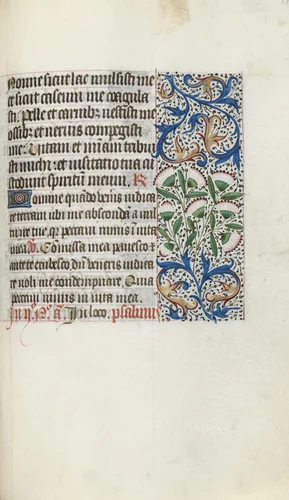 Nonne sicut lac mulsisti me
et sicut caseum me coagula
sti. Pelle et carnib3 vestisti me
ossib3 et nervis compegisti
me. Vitam et miam tribui
sti michi: et visitatio tua cu
stodivit spiritum meum. R
Domine quado venis iudica
re terram ubi me absconda a
vultu ire tue. quia peccavi nimis in vita
mea. Comissa mea pavesco et
ante te erubesco du veneris iudica
re noli me condempnare. Quia
peccavi nimis in vita mea.
In loco. psalmus